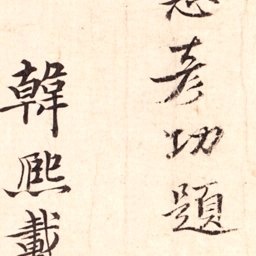 彦功題
韓熙載